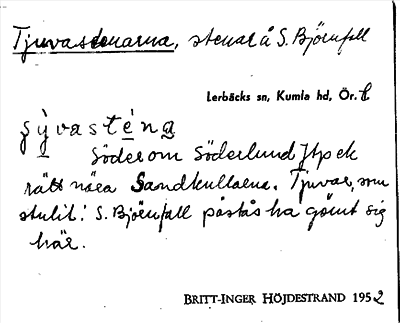 Tjuvastenarna, stenar å S. Björnfall
Lerbäcks sn, Kumla hd, Ör. l.
şỳvasténa̲
Söder om Söderlund Jtp ek
rätt nära Sandkullarna. Tjuvar, som
stulit i S. Björnfall påstås ha gömt sig
här.
BRITT-INGER HÖJDESTRAND 1952